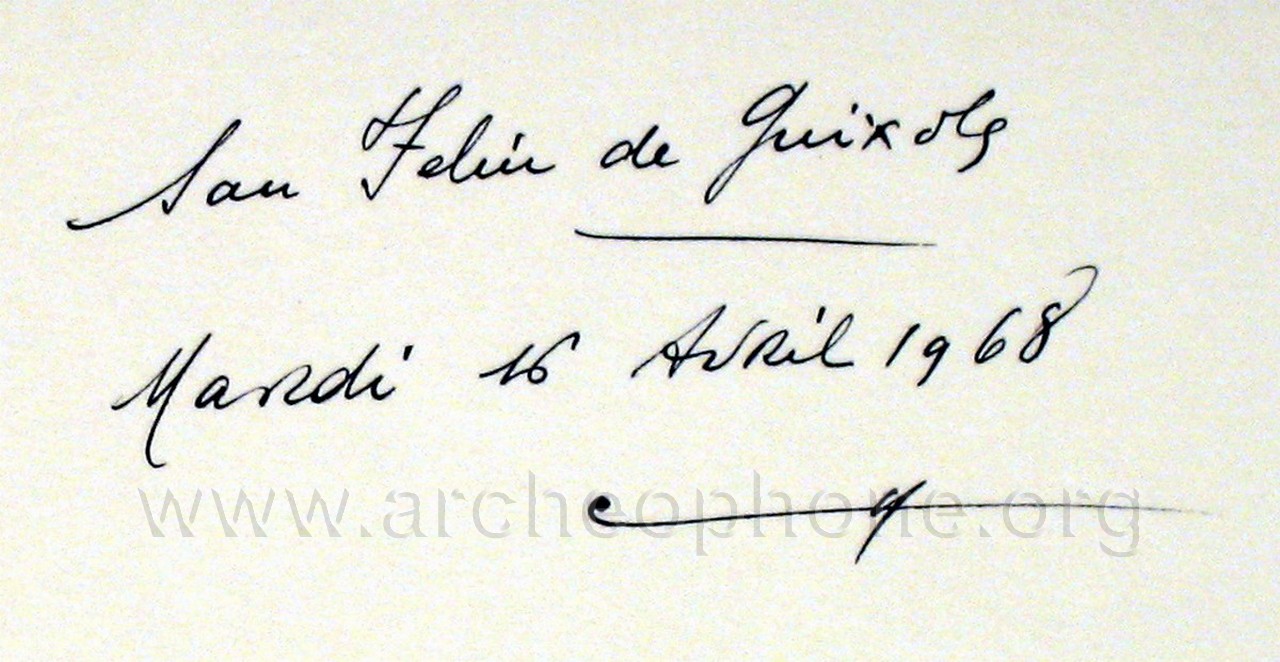 San Feliu de Guixols
Mardi 16 Avril 1968
www.archeophone.org